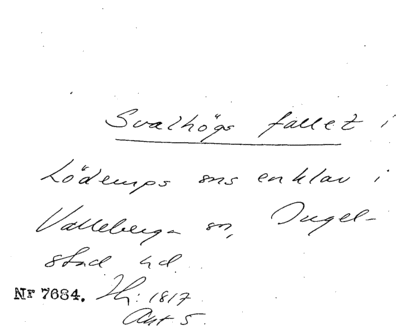 Svalhögs fallet i
Löderups sns enklav i
Valleberga sn, Ingel-
stad hd.
Nr 7684. Th: 1817
Akt 5.